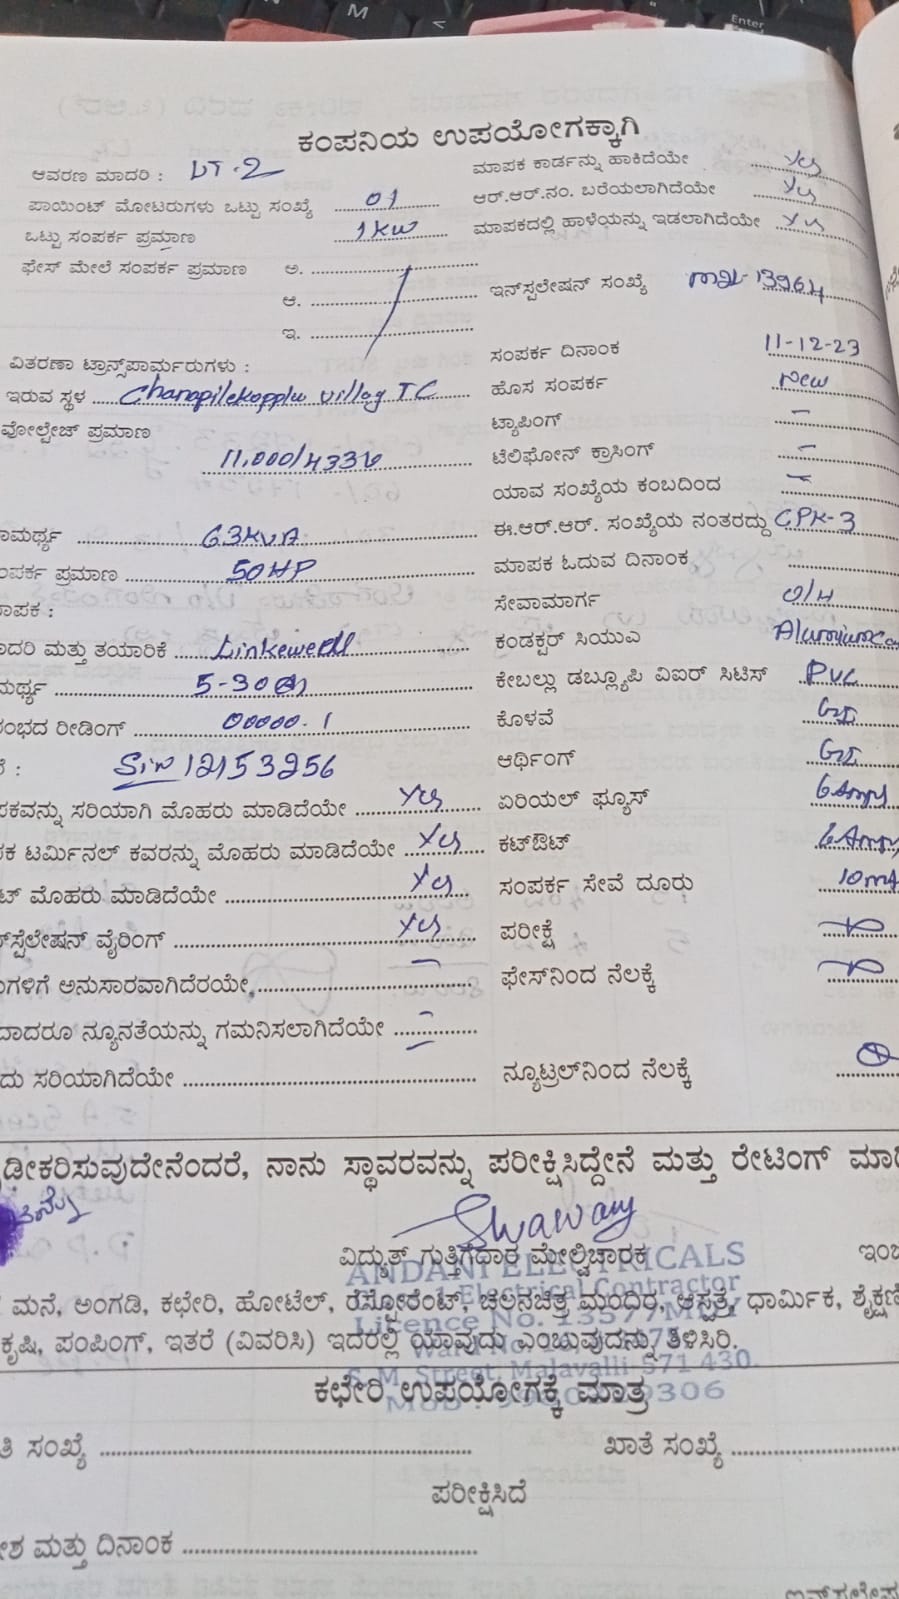 M
<
Enter
ಕಂಪನಿಯ ಉಪಯೋಗಕ್ಕಾಗಿ
ಆವರಣ ಮಾದರಿ : LT-2 ಮಾಪಕ ಕಾರ್ಡನ್ನು ಹಾಕಿದೆಯೇ Yes
ಪಾಯಿಂಟ್ ಮೋಟರುಗಳು ಒಟ್ಟು ಸಂಖ್ಯೆ 01 ಆರ್.ಆರ್.ನಂ. ಬರೆಯಲಾಗಿದೆಯೇ Yes
ಒಟ್ಟು ಸಂಪರ್ಕ ಪ್ರಮಾಣ 1KW ಮಾಪಕದಲ್ಲಿ ಹಾಳೆಯನ್ನು ಇಡಲಾಗಿದೆಯೇ Yes
ಫೇಸ್ ಮೇಲೆ ಸಂಪರ್ಕ ಪ್ರಮಾಣ ಅ.
ಆ. ಇನ್‌ಸ್ಪಲೇಷನ್ ಸಂಖ್ಯೆ 13964
ಇ.
ವಿತರಣಾ ಟ್ರಾನ್ಸ್‌ಪಾರ್ಮರುಗಳು : ಸಂಪರ್ಕ ದಿನಾಂಕ 11-12-23
ಇರುವ ಸ್ಥಳ Chanapilekopplu Villag TC ಹೊಸ ಸಂಪರ್ಕ New
ವೋಲ್ಟೇಜ್ ಪ್ರಮಾಣ ಟ್ಯಾಪಿಂಗ್ -
11,000/433V ಟೆಲಿಫೋನ್ ಕ್ರಾಸಿಂಗ್ -
ಯಾವ ಸಂಖ್ಯೆಯ ಕಂಬದಿಂದ -
ಾಮರ್ಥ್ಯ 63KVA ಈ.ಆರ್.ಆರ್. ಸಂಖ್ಯೆಯ ನಂತರದ್ದು CPK-3
ಂಪರ್ಕ ಪ್ರಮಾಣ 50HP ಮಾಪಕ ಓದುವ ದಿನಾಂಕ
ಾಪಕ : ಸೇವಾಮಾರ್ಗ O/H
ಾದರಿ ಮತ್ತು ತಯಾರಿಕೆ Linkewell ಕಂಡಕ್ಟರ್ ಸಿಯುಎ
ಮರ್ಥ್ಯ 5-30 ಕೇಬಲ್ಲು ಡಬ್ಲ್ಯೂಪಿ ವಿಐರ್ ಸಿಟಿಸ್ PVC
ಂಭದ ರೀಡಿಂಗ್ 00000.1 ಕೊಳವೆ GI
: 12153256 ಆರ್ಥಿಂಗ್ GI
ಪಕವನ್ನು ಸರಿಯಾಗಿ ಮೊಹರು ಮಾಡಿದೆಯೇ Yes ಏರಿಯಲ್ ಫ್ಯೂಸ್ 6 Amps
ಪಕ ಟರ್ಮಿನಲ್ ಕವರನ್ನು ಮೊಹರು ಮಾಡಿದೆಯೇ Yes ಕಟ್‌ಔಟ್ 6 Amps
ಟ್ ಮೊಹರು ಮಾಡಿದೆಯೇ Yes ಸಂಪರ್ಕ ಸೇವೆ ದೂರು 10
್‌ಸ್ಪೆಲೇಷನ್ ವೈರಿಂಗ್ Yes ಪರೀಕ್ಷೆ
ುಗಳಿಗೆ ಅನುಸಾರವಾಗಿದೆರಯೇ, - ಫೇಸ್‌ನಿಂದ ನೆಲಕ್ಕೆ
ದಾದರೂ ನ್ಯೂನತೆಯನ್ನು ಗಮನಿಸಲಾಗಿದೆಯೇ -
ದು ಸರಿಯಾಗಿದೆಯೇ - ನ್ಯೂಟ್ರಲ್‌ನಿಂದ ನೆಲಕ್ಕೆ
ಡೀಕರಿಸುವುದೇನೆಂದರೆ, ನಾನು ಸ್ಥಾವರವನ್ನು ಪರೀಕ್ಷಿಸಿದ್ದೇನೆ ಮತ್ತು ರೇಟಿಂಗ್ ಮಾಡಿ
ವಿದ್ಯುತ್ ಗುತ್ತಿಗೆಧಾರ ಮೇಲ್ವಿಚಾರಕ
ANDANI ELECTRICALS
Electrical Contractor
ಮನೆ, ಅಂಗಡಿ, ಕಛೇರಿ, ಹೋಟೆಲ್, ರೆಸ್ಟೋರೆಂಟ್, ಚಲನಚಿತ್ರ ಮಂದಿರ, ಆಸ್ಪತ್ರೆ, ಧಾರ್ಮಿಕ, ಶೈಕ್ಷಣಿ
Licence No. 13577MDY
ಕೃಷಿ, ಪಂಪಿಂಗ್, ಇತರೆ (ವಿವರಿಸಿ) ಇದರಲ್ಲಿ ಯಾವುದು ಎಂಬುವುದನ್ನು ತಿಳಿಸಿರಿ.
S.M. Street, Malavalli-571 430.
ಕಛೇರಿ ಉಪಯೋಗಕ್ಕೆ ಮಾತ್ರ
ತಿ ಸಂಖ್ಯೆ ಖಾತೆ ಸಂಖ್ಯೆ
ಪರೀಕ್ಷಿಸಿದೆ
ೇಶ ಮತ್ತು ದಿನಾಂಕ